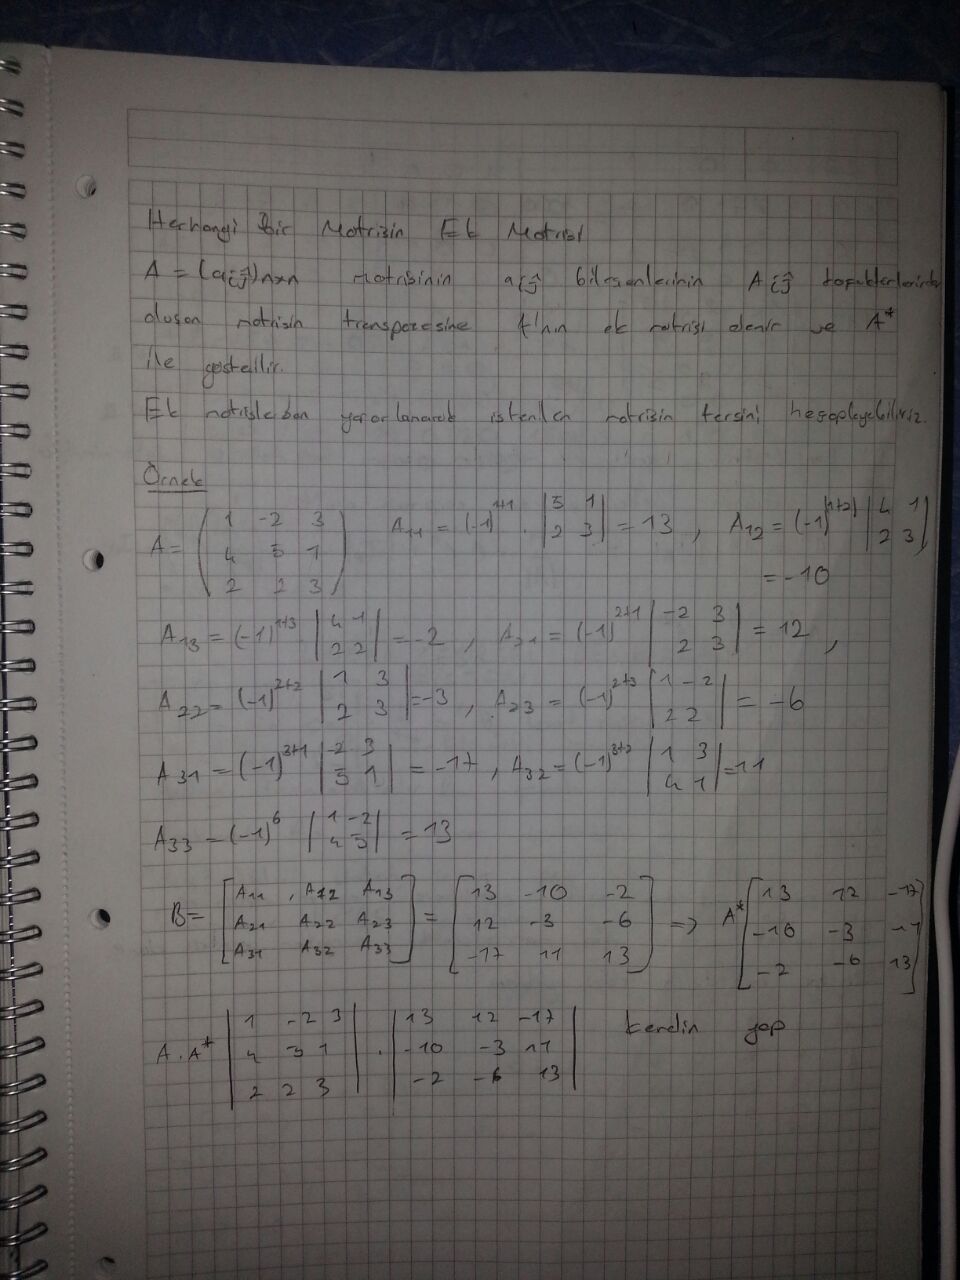 Herhangi Bir Matrisin Ek Matrisi
A = (aij)nxn matrisinin aij bileşenlerinin Aij
oluşan matrisin transpozesine A'nın ek matrisi denir ve A*
ile gösterilir.
Ek matrislerden yararlanarak istenilen matrisin tersini hesaplayabiliriz.
Örnek
A = ( 1 -2 3 ; 4 5 1 ; 2 2 3 ) A11 = (-1)^1+1 . |5 1 ; 2 3| = 13 , A12 = (-1)^(1+2) |4 1 ; 2 3|
= -10
A13 = (-1)^1+3 |4 1 ; 2 2| = -2 , A21 = (-1)^2+1 |-2 3 ; 2 3| = 12 ,
A22 = (-1)^2+2 |1 3 ; 2 3| = -3 , A23 = (-1)^2+3 |1 -2 ; 2 2| = -6
A31 = (-1)^3+1 |-2 3 ; 5 1| = -17 , A32 = (-1)^3+2 |1 3 ; 4 1| = 11
A33 = (-1)^6 |1 -2 ; 4 5| = 13
B = [A11 , A12 A13 ; A21 A22 A23 ; A31 A32 A33] = [13 -10 -2 ; 12 -3 -6 ; -17 11 13] => A* [13 12 -17 ; -10 -3 11 ; -2 -6 13]
A . A* |1 -2 3 ; 4 5 1 ; 2 2 3| . |13 12 -17 ; -10 -3 11 ; -2 -6 13| kendin yap